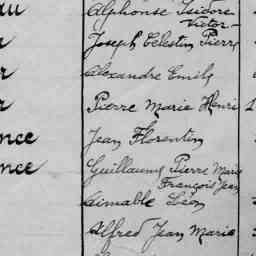 au Alphonse Isidore
Victor
r Joseph Celestin Pierre
r Alexandre Emile
r Pierre Marie Henri
nce Jean Florentin
nce Guillaume Pierre Marie
François Jean
Aimable Léon
Alfred Jean Marie